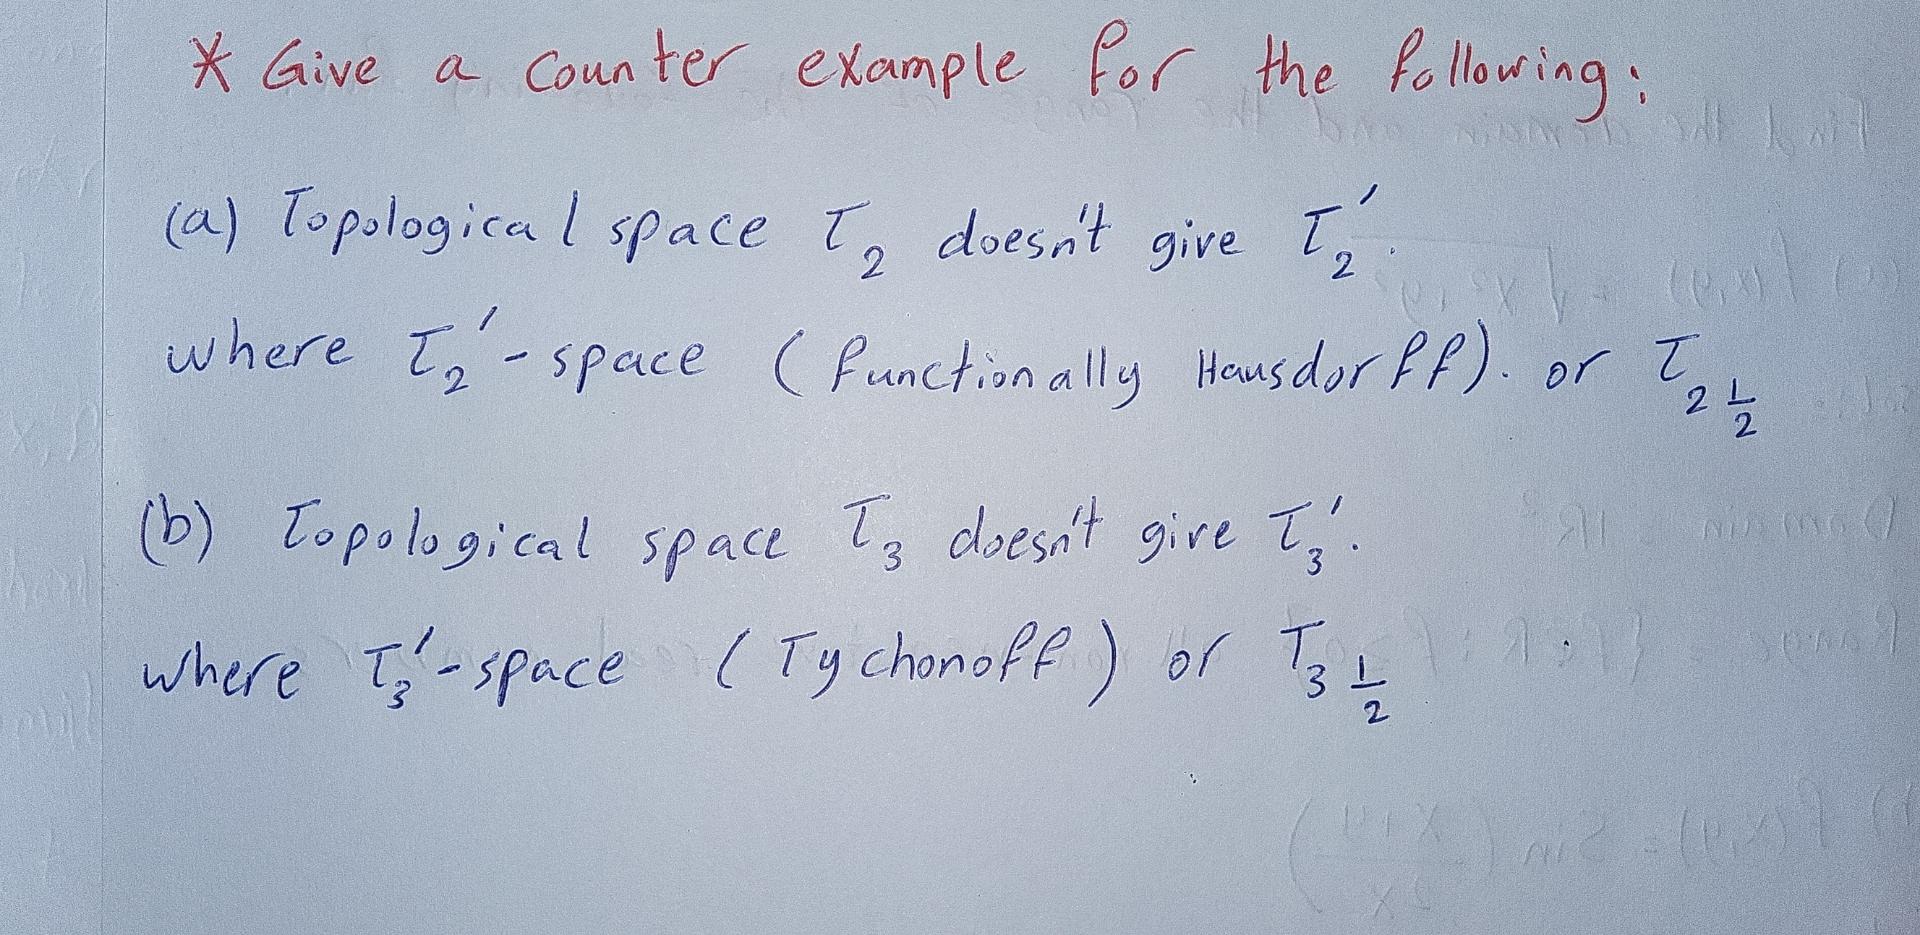 * Give a counter example for the following:
(a) Topological space T₂ doesn't give T₂'.
where T₂'-space (functionally Hausdorff). or T₂ ½
(b) Topological space T₃ doesn't give T₃'.
where T₃'-space (Tychonoff) or T₃ ½